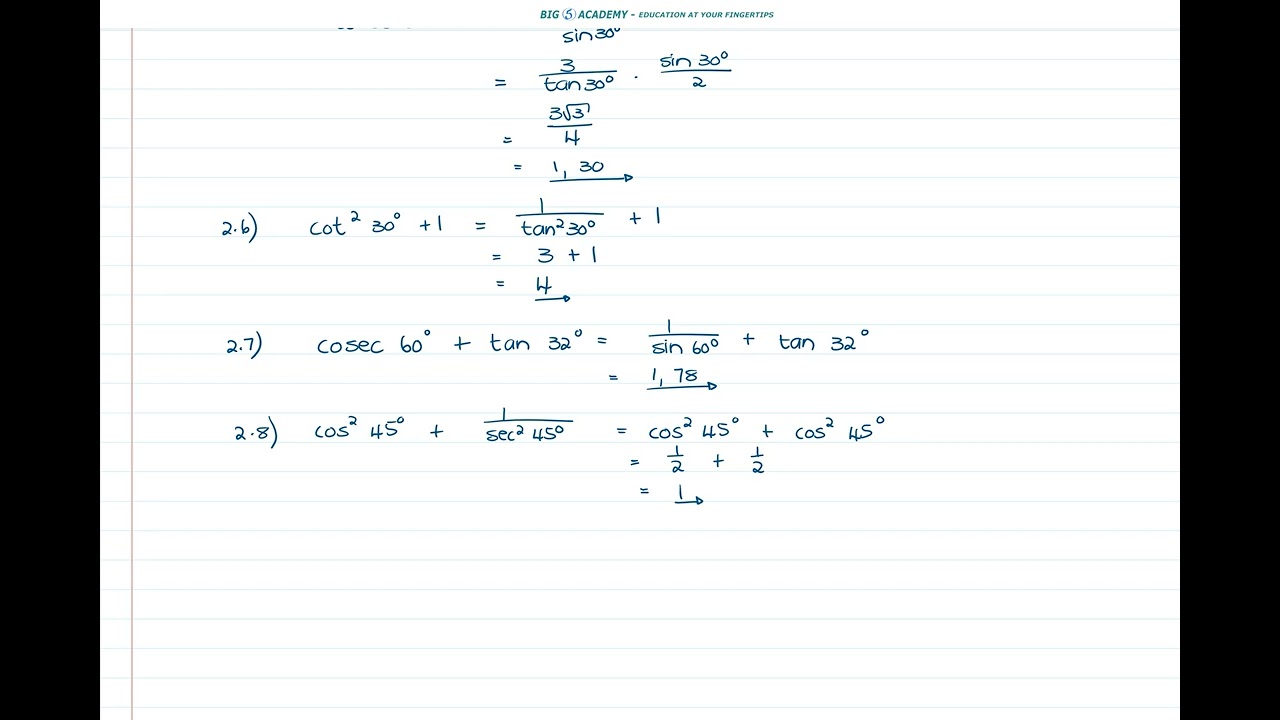 BIG 5 ACADEMY - EDUCATION AT YOUR FINGERTIPS
sin 30°
= 3/tan 30° · sin 30°/2
= 3√3/4
= 1,30
2.6) cot² 30° + 1 = 1/tan² 30° + 1
= 3 + 1
= 4
2.7) cosec 60° + tan 32° = 1/sin 60° + tan 32°
= 1,78
2.8) cos² 45° + 1/sec² 45° = cos² 45° + cos² 45°
= 1/2 + 1/2
= 1